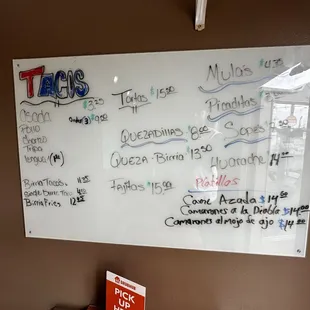 TACOS $3.25
Asada order(3) $9.00
Pollo
Chorizo
Tripa
Lengua
Birria Tacos
Birria Fries 12.00
Tortas $15.00
QUEZADILLAS $8.00
QUEZA-Birria $13.50
Fajitas $15.00
Mulas $4.35
Picaditas $
Sopes
Huarache 14.00
Platillos
Carne Azada $14.00
Camarones a la Diabla $14.00
Camarones al mojo de ajo $14.00
PICK
UP